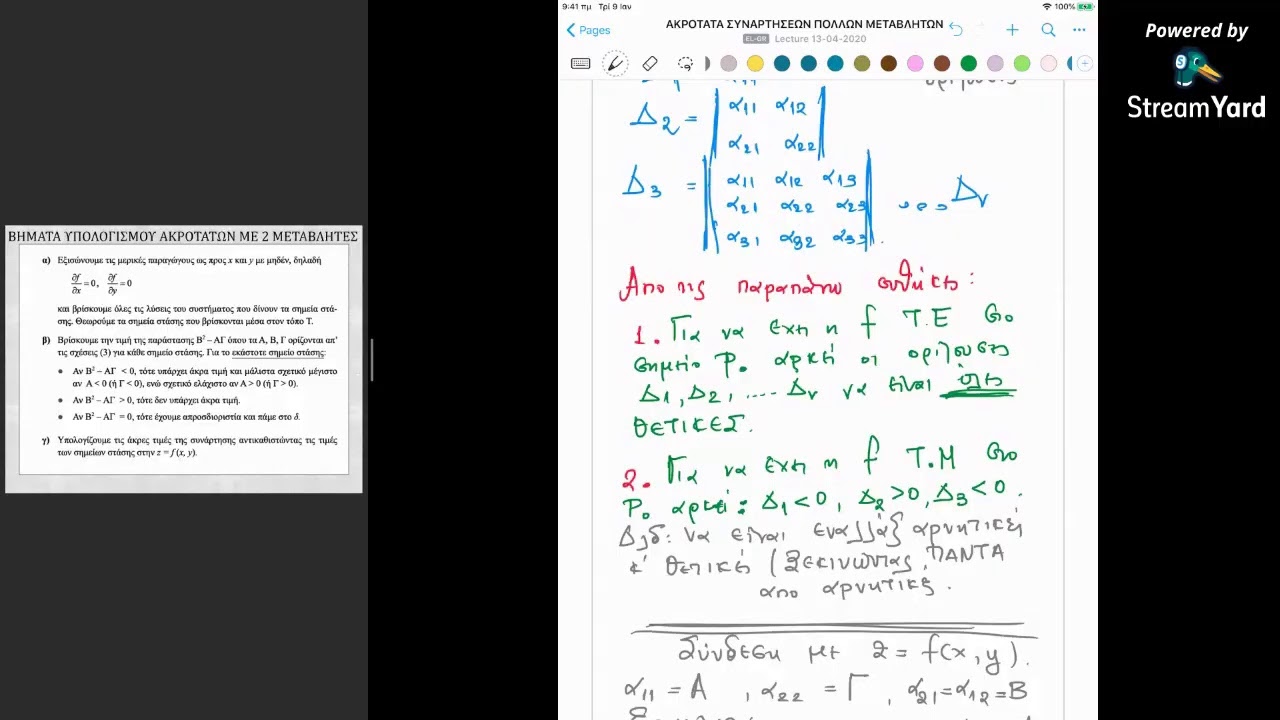 ΒΗΜΑΤΑ ΥΠΟΛΟΓΙΣΜΟΥ ΑΚΡΟΤΑΤΩΝ ΜΕ 2 ΜΕΤΑΒΛΗΤΕΣ
α) Εξισώνουμε τις μερικές παραγώγους ως προς x και y με μηδέν, δηλαδή
∂f/∂x = 0, ∂f/∂y = 0
και βρίσκουμε όλες τις λύσεις του συστήματος που δίνουν τα σημεία στά-
σης. Θεωρούμε τα σημεία στάσης που βρίσκονται μέσα στον τόπο Τ.
β) Βρίσκουμε την τιμή της παράστασης Β² – ΑΓ όπου τα Α, Β, Γ ορίζονται απ'
τις σχέσεις (3) για κάθε σημείο στάσης. Για το εκάστοτε σημείο στάσης:
● Αν Β² – ΑΓ < 0, τότε υπάρχει άκρα τιμή και μάλιστα σχετικό μέγιστο
αν Α < 0 (ή Γ < 0), ενώ σχετικό ελάχιστο αν Α > 0 (ή Γ > 0).
● Αν Β² – ΑΓ > 0, τότε δεν υπάρχει άκρα τιμή.
● Αν Β² – ΑΓ = 0, τότε έχουμε απροσδιοριστία και πάμε στο δ.
γ) Υπολογίζουμε τις άκρες τιμές της συνάρτησης αντικαθιστώντας τις τιμές
των σημείων στάσης στην z = f (x, y).
9:41 πμ Τρί 9 Ιαν
100%
Pages
ΑΚΡΟΤΑΤΑ ΣΥΝΑΡΤΗΣΕΩΝ ΠΟΛΛΩΝ ΜΕΤΑΒΛΗΤΩΝ
EL-GR Lecture 13-04-2020
Δ2 = | α11 α12
α21 α22 |
Δ3 = | α11 α12 α13
α21 α22 α23
α31 α32 α33 | . ... Δν
Απο τις παραπάνω συνθήκες:
1. Για να έχη η f Τ.Ε στο
σημείο Ρο αρκεί οι ορίζουσες
Δ1, Δ2, .... Δν να είναι όλες
ΘΕΤΙΚΕΣ.
2. Για να έχη η f Τ.Μ στο
Ρο αρκεί: Δ1 < 0, Δ2 > 0, Δ3 < 0.
Δλδ: να είναι εναλλάξ αρνητικές
κ' θετικές (ξεκινώντας ΠΑΝΤΑ
απο αρνητικές.
Σύνδεση με z = f(x, y).
α11 = Α , α22 = Γ , α21 = α12 = Β
Powered by
StreamYard